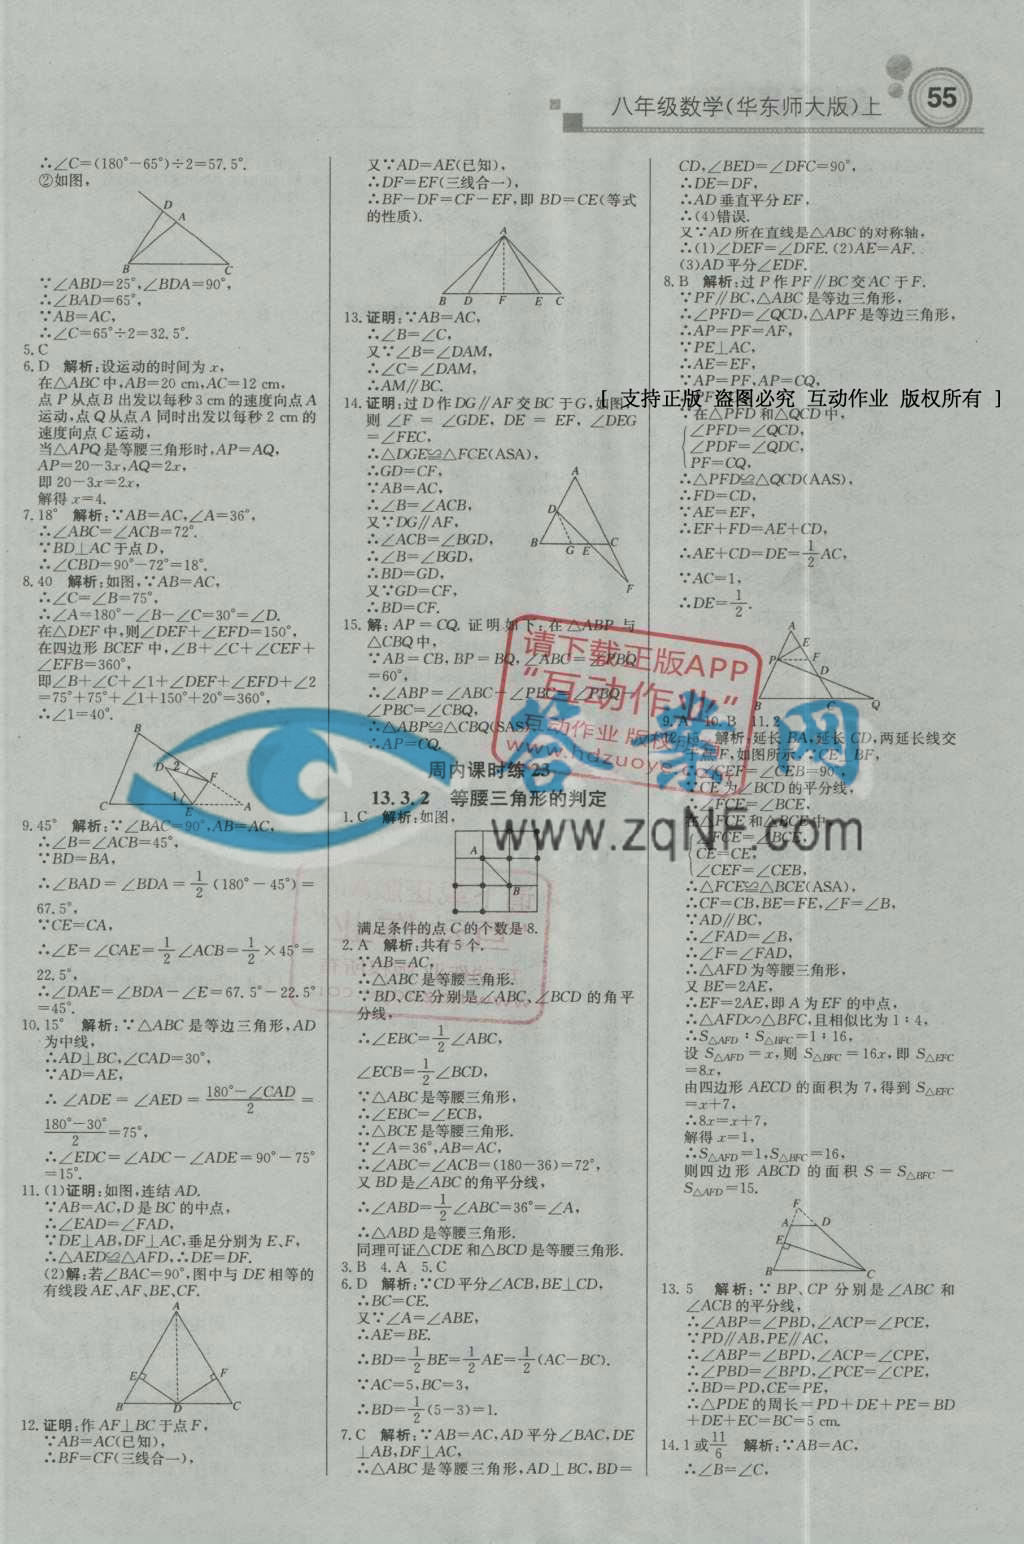 八年级数学(华东师大版)上
55
∴∠C=(180°-65°)÷2=57.5°.
②如图,
D
A
B
C
∵∠ABD=25°,∠BDA=90°,
∴∠BAD=65°,
∵AB=AC,
∴∠C=65°÷2=32.5°.
5. C
6. D 解析:设运动的时间为 x,
在△ABC 中,AB=20 cm,AC=12 cm,
点 P 从点 B 出发以每秒 3 cm 的速度向点 A
运动,点 Q 从点 A 同时出发以每秒 2 cm 的
速度向点 C 运动,
当△APQ 是等腰三角形时,AP=AQ,
AP=20-3x,AQ=2x,
即 20-3x=2x,
解得 x=4.
7. 18° 解析:∵AB=AC,∠A=36°,
∴∠ABC=∠ACB=72°.
∵BD⊥AC 于点 D,
∴∠CBD=90°-72°=18°.
8. 40 解析:如图,∵AB=AC,
∴∠C=∠B=75°,
∴∠A=180°-∠B-∠C=30°=∠D.
在△DEF 中,则∠DEF+∠EFD=150°,
在四边形 BCEF 中,∠B+∠C+∠CEF+
∠EFB=360°,
即∠B+∠C+∠1+∠DEF+∠EFD+∠2
=75°+75°+∠1+150°+20°=360°,
∴∠1=40°.
B
D 2 F
1
C E A
9. 45° 解析:∵∠BAC=90°,AB=AC,
∴∠B=∠ACB=45°,
∵BD=BA,
∴∠BAD=∠BDA=1/2(180°-45°)=
67.5°,
∵CE=CA,
∴∠E=∠CAE=1/2∠ACB=1/2×45°=
22.5°,
∴∠DAE=∠BDA-∠E=67.5°-22.5°
=45°.
10. 15° 解析:∵△ABC 是等边三角形,AD
为中线,
∴AD⊥BC,∠CAD=30°,
∵AD=AE,
∴∠ADE=∠AED=(180°-∠CAD)/2=
(180°-30°)/2=75°,
∴∠EDC=∠ADC-∠ADE=90°-75°
=15°.
11. (1)证明:如图,连结 AD.
∵AB=AC,D 是 BC 的中点,
∴∠EAD=∠FAD,
∵DE⊥AB,DF⊥AC,垂足分别为 E、F,
∴△AED≌△AFD,∴DE=DF.
(2)解:若∠BAC=90°,图中与 DE 相等的
有线段 AE、AF、BE、CF.
A
E F
B D C
12. 证明:作 AF⊥BC 于点 F,
∵AB=AC(已知),
∴BF=CF(三线合一),
又∵AD=AE(已知),
∴DF=EF(三线合一),
∴BF-DF=CF-EF,即 BD=CE(等式
的性质).
A
B D F E C
13. 证明:∵AB=AC,
∴∠B=∠C,
又∵∠B=∠DAM,
∴∠C=∠DAM,
∴AM∥BC.
14. 证明:过 D 作 DG∥AF 交 BC 于 G,如图,
则∠F=∠GDE,DE=EF,∠DEG
=∠FEC,
∴△DGE≌△FCE(ASA),
∴GD=CF,
∵AB=AC,
∴∠B=∠ACB,
又∵DG∥AF,
∴∠ACB=∠BGD,
∴∠B=∠BGD,
∴BD=GD,
又∵GD=CF,
∴BD=CF.
A
D
B G E C
F
15. 解:AP=CQ. 证明如下:在△ABP 与
△CBQ 中,
∵AB=CB,BP=BQ,∠ABC=∠PBQ
=60°,
∴∠ABP=∠ABC-∠PBC=∠PBQ-
∠PBC=∠CBQ,
∴△ABP≌△CBQ(SAS),
∴AP=CQ.
周内课时练 23
13.3.2 等腰三角形的判定
1. C 解析:如图,
A
B
满足条件的点 C 的个数是 8.
2. A 解析:共有 5 个.
∵AB=AC,
∴△ABC 是等腰三角形.
∵BD、CE 分别是∠ABC、∠BCD 的角平
分线,
∴∠EBC=1/2∠ABC,
∠ECB=1/2∠BCD,
∵△ABC 是等腰三角形,
∴∠EBC=∠ECB,
∴△BCE 是等腰三角形.
∵∠A=36°,AB=AC,
∴∠ABC=∠ACB=(180-36)=72°,
又 BD 是∠ABC 的角平分线,
∴∠ABD=1/2∠ABC=36°=∠A,
∴△ABD 是等腰三角形.
同理可证△CDE 和△BCD 是等腰三角形.
3. B 4. A 5. C
6. D 解析:∵CD 平分∠ACB,BE⊥CD,
∴BC=CE.
又∵∠A=∠ABE,
∴AE=BE.
∴BD=1/2BE=1/2AE=1/2(AC-BC).
∵AC=5,BC=3,
∴BD=1/2(5-3)=1.
7. C 解析:∵AB=AC,AD 平分∠BAC,DE
⊥AB,DF⊥AC,
∴△ABC 是等腰三角形,AD⊥BC,BD=
CD,∠BED=∠DFC=90°,
∴DE=DF,
∴AD 垂直平分 EF,
∴(4)错误.
又∵AD 所在直线是△ABC 的对称轴,
∴(1)∠DEF=∠DFE. (2)AE=AF.
(3)AD 平分∠EDF.
8. B 解析:过 P 作 PF∥BC 交 AC 于 F.
∵PF∥BC,△ABC 是等边三角形,
∴∠PFD=∠QCD,△APF 是等边三角形,
∴AP=PF=AF,
∵PE⊥AC,
∴AE=EF,
∵AP=PF,AP=CQ,
[ 支持正版 盗图必究 互动作业 版权所有 ]
∵在△PFD 和△QCD 中,
∠PFD=∠QCD,
∠PDF=∠QDC,
PF=CQ,
∴△PFD≌△QCD(AAS),
∴FD=CD,
∵AE=EF,
∴EF+FD=AE+CD,
∴AE+CD=DE=1/2AC,
∵AC=1,
∴DE=1/2.
A
E
P F
D
B C Q
9. A 10. B 11. 2
12. 15 解析:延长 BA,延长 CD,两延长线交
于点 F,如图所示,∵CE⊥BF,
∴∠CEF=∠CEB=90°,
∵CE 为∠BCD 的平分线,
∴∠FCE=∠BCE,
在△FCE 和△BCE 中,
∠FCE=∠BCE,
CE=CE,
∠CEF=∠CEB,
∴△FCE≌△BCE(ASA),
∴CF=CB,BE=FE,∠F=∠B,
∵AD∥BC,
∴∠FAD=∠B,
∴∠F=∠FAD,
∴△AFD 为等腰三角形,
又 BE=2AE,
∴EF=2AE,即 A 为 EF 的中点,
∴△AFD∽△BFC,且相似比为 1∶4,
∴S△AFD∶S△BFC=1∶16,
设 S△AFD=x,则 S△BFC=16x,即 S△EFC
=8x,
由四边形 AECD 的面积为 7,得到 S△EFC
=x+7,
∴8x=x+7,
解得 x=1,
∴S△AFD=1,S△BFC=16,
则四边形 ABCD 的面积 S=S△BFC-
S△AFD=15.
F
A D
E
B C
13. 5 解析:∵BP、CP 分别是∠ABC 和
∠ACB 的平分线,
∴∠ABP=∠PBD,∠ACP=∠PCE,
∵PD∥AB,PE∥AC,
∴∠ABP=∠BPD,∠ACP=∠CPE,
∴∠PBD=∠BPD,∠PCE=∠CPE,
∴BD=PD,CE=PE,
∴△PDE 的周长=PD+DE+PE=BD
+DE+EC=BC=5 cm.
14. 1 或 11/6 解析:∵AB=AC,
∴∠B=∠C,
请下载正版APP
“互动作业”
互动作业 版权所有
www.hdzuoye.com
答案网
www.zqNF.com